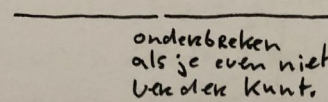 onderbreken
als je even niet
verder kunt.